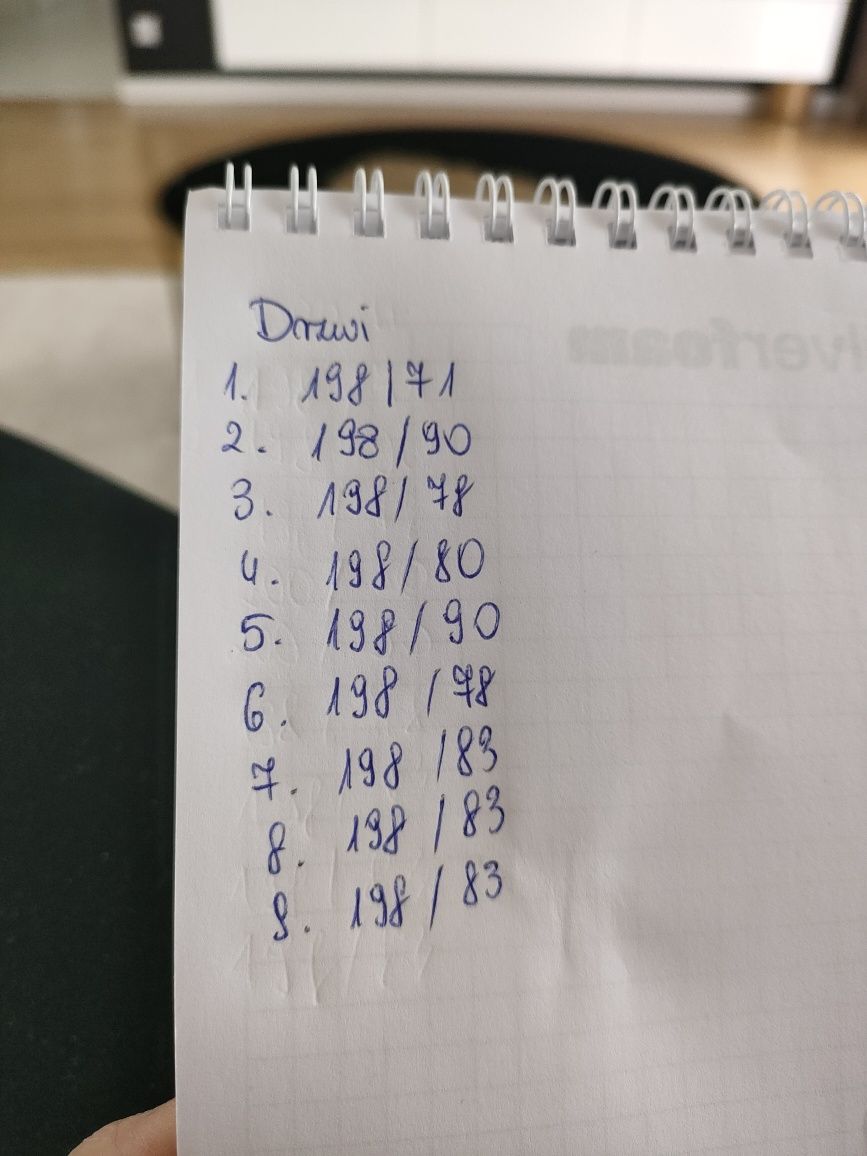 Drzwi
1. 198/71
2. 198/90
3. 198/78
4. 198/80
5. 198/90
6. 198/78
7. 198/83
8. 198/83
9. 198/83